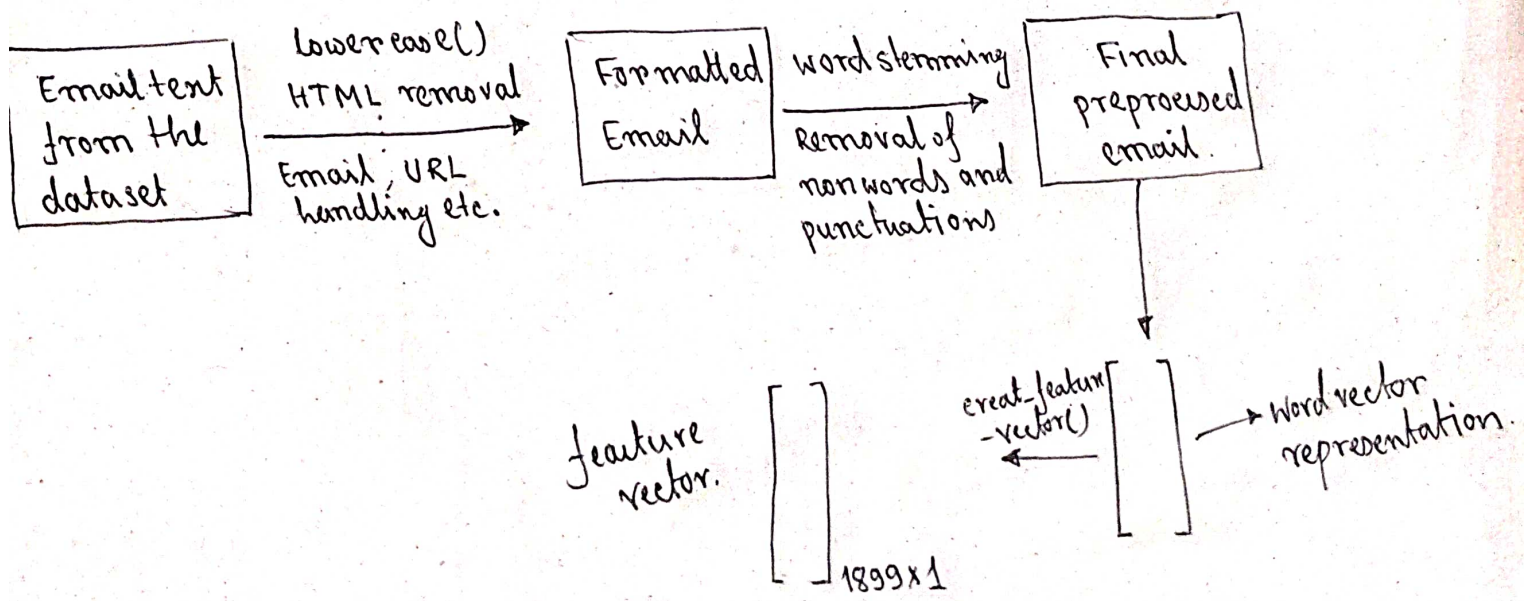 Email text
from the
dataset
lowercase()
HTML removal
Email, URL
handling etc.
Formatted
Email
word stemming
Removal of
nonwords and
punctuations
Final
preprocessed
email.
creat_feature
-vector()
word vector
representation.
feauture
vector.
1899x1